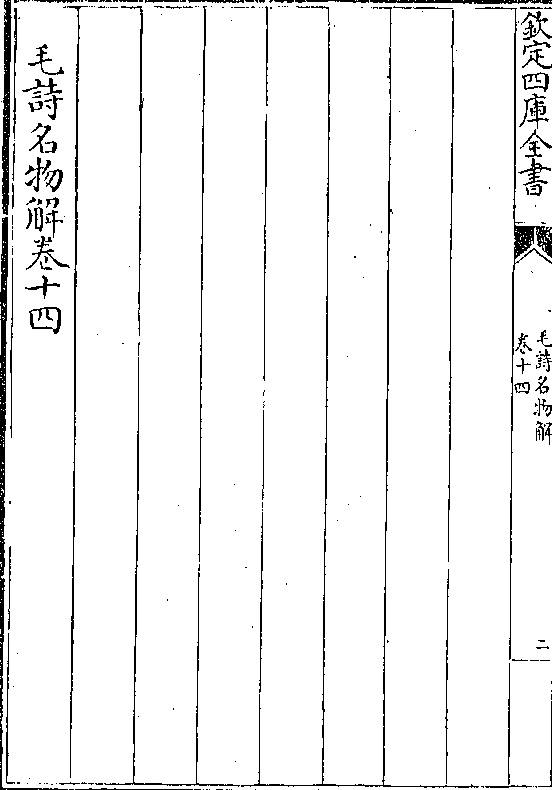 欽定四庫全書
毛詩名物解
卷十四
二
毛詩名物解卷十四